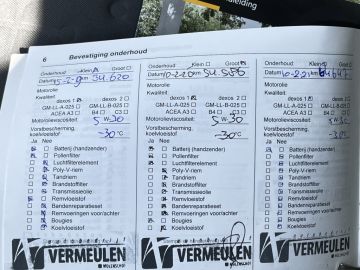 6 Bevestiging onderhoud
Onderhoud Klein Groot
Datum 34.620
Motorolie
Kwaliteit
dexos 1 dexos 2
GM-LL-A-025 GM-LL-B-025
ACEA A3 B4 C3
Motorolieviscositeit 5 W 30
Vorstbescherming,
koelvloeistof -30°C
Ja Nee
Batterij (handzender)
Pollenfilter
Luchtfilterelement
Poly-V-riem
Tandriem
Brandstoffilter
Transmissieolie
Remvloeistof
Bandenreparatieset
Remvoeringen voor/achter
Bougies
VERMEULEN
Onderhoud Klein Groot
Datum
Motorolie
Kwaliteit
dexos 1 dexos 2
GM-LL-A-025 GM-LL-B-025
ACEA A3 B4 C3
Motorolieviscositeit 5 W 30
Vorstbescherming,
koelvloeistof -30°C
Ja Nee
Batterij (handzender)
Pollenfilter
Luchtfilterelement
Poly-V-riem
Tandriem
Brandstoffilter
Transmissieolie
Remvloeistof
Bandenreparatieset
Remvoeringen voor/achter
Bougies
VERMEULEN
Onderhoud Klein Groot
Datum
Motorolie
Kwaliteit
dexos 1
GM-LL-A-025
ACEA A3
Motorolieviscositeit
Vorstbescherming,
koelvloeistof
Ja Nee
Batterij (handzender)
Pollenfilter
Luchtfilterelement
Poly-V-riem
Tandriem
Brandstoffilter
Transmissieolie
Remvloeistof
Bandenreparatieset
Remvoeringen voor/achter
Bougies
VERMEULEN